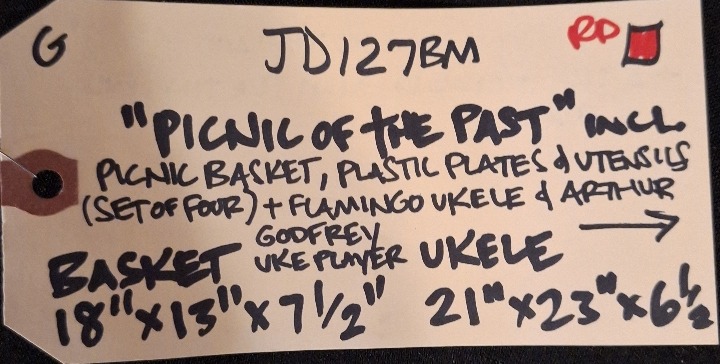 G JD127BM RD
"PICNIC OF THE PAST" INCL.
PICNIC BASKET, PLASTIC PLATES & UTENSILS
(SET OF FOUR) + FLAMINGO UKELE & ARTHUR
GODFREY
UKE PLAYER
BASKET UKELE
18" x 13" x 7 1/2" 21" x 23" x 6 1/2